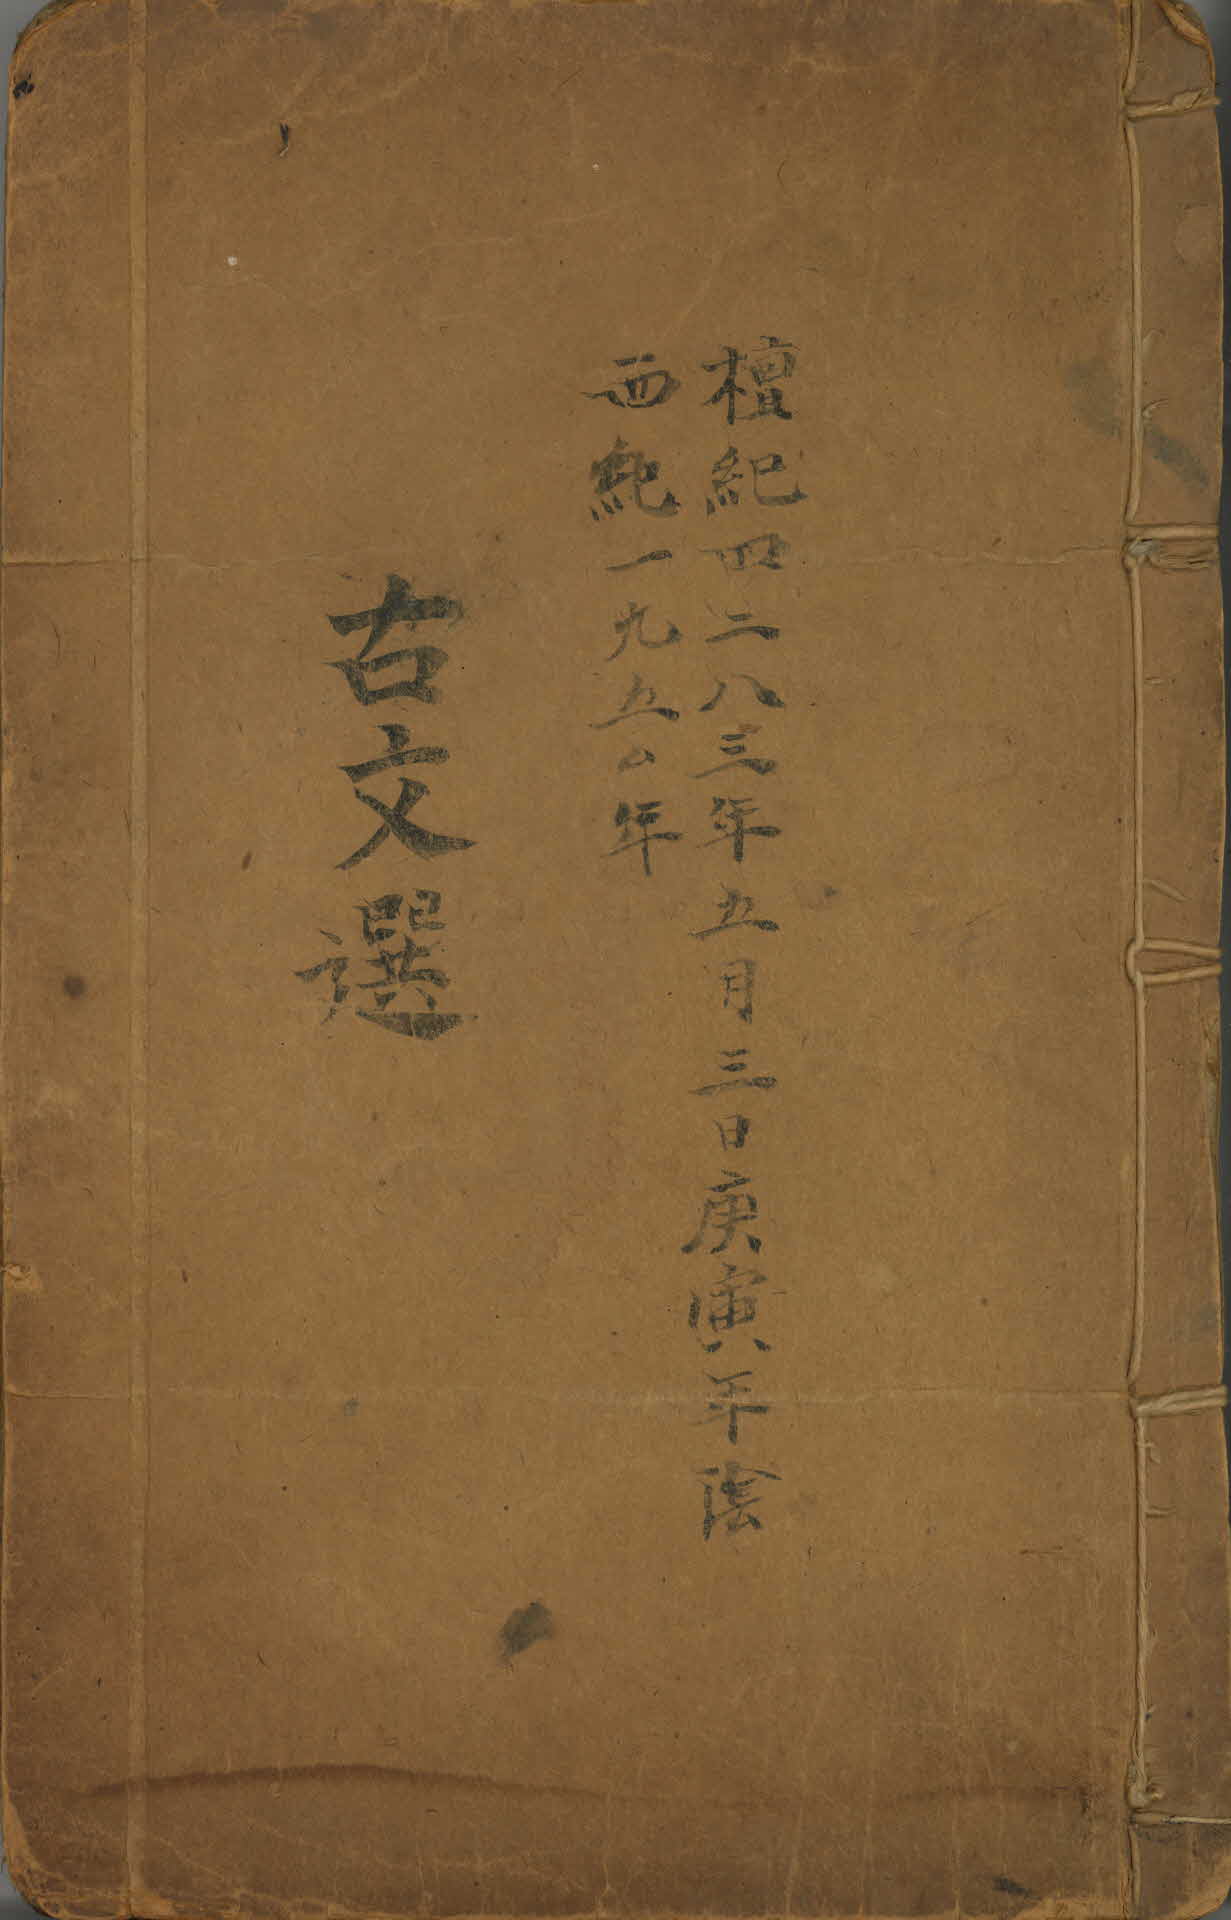 檀紀四二八三年五月三日庚寅年陰
西紀一九五〇年
古文選